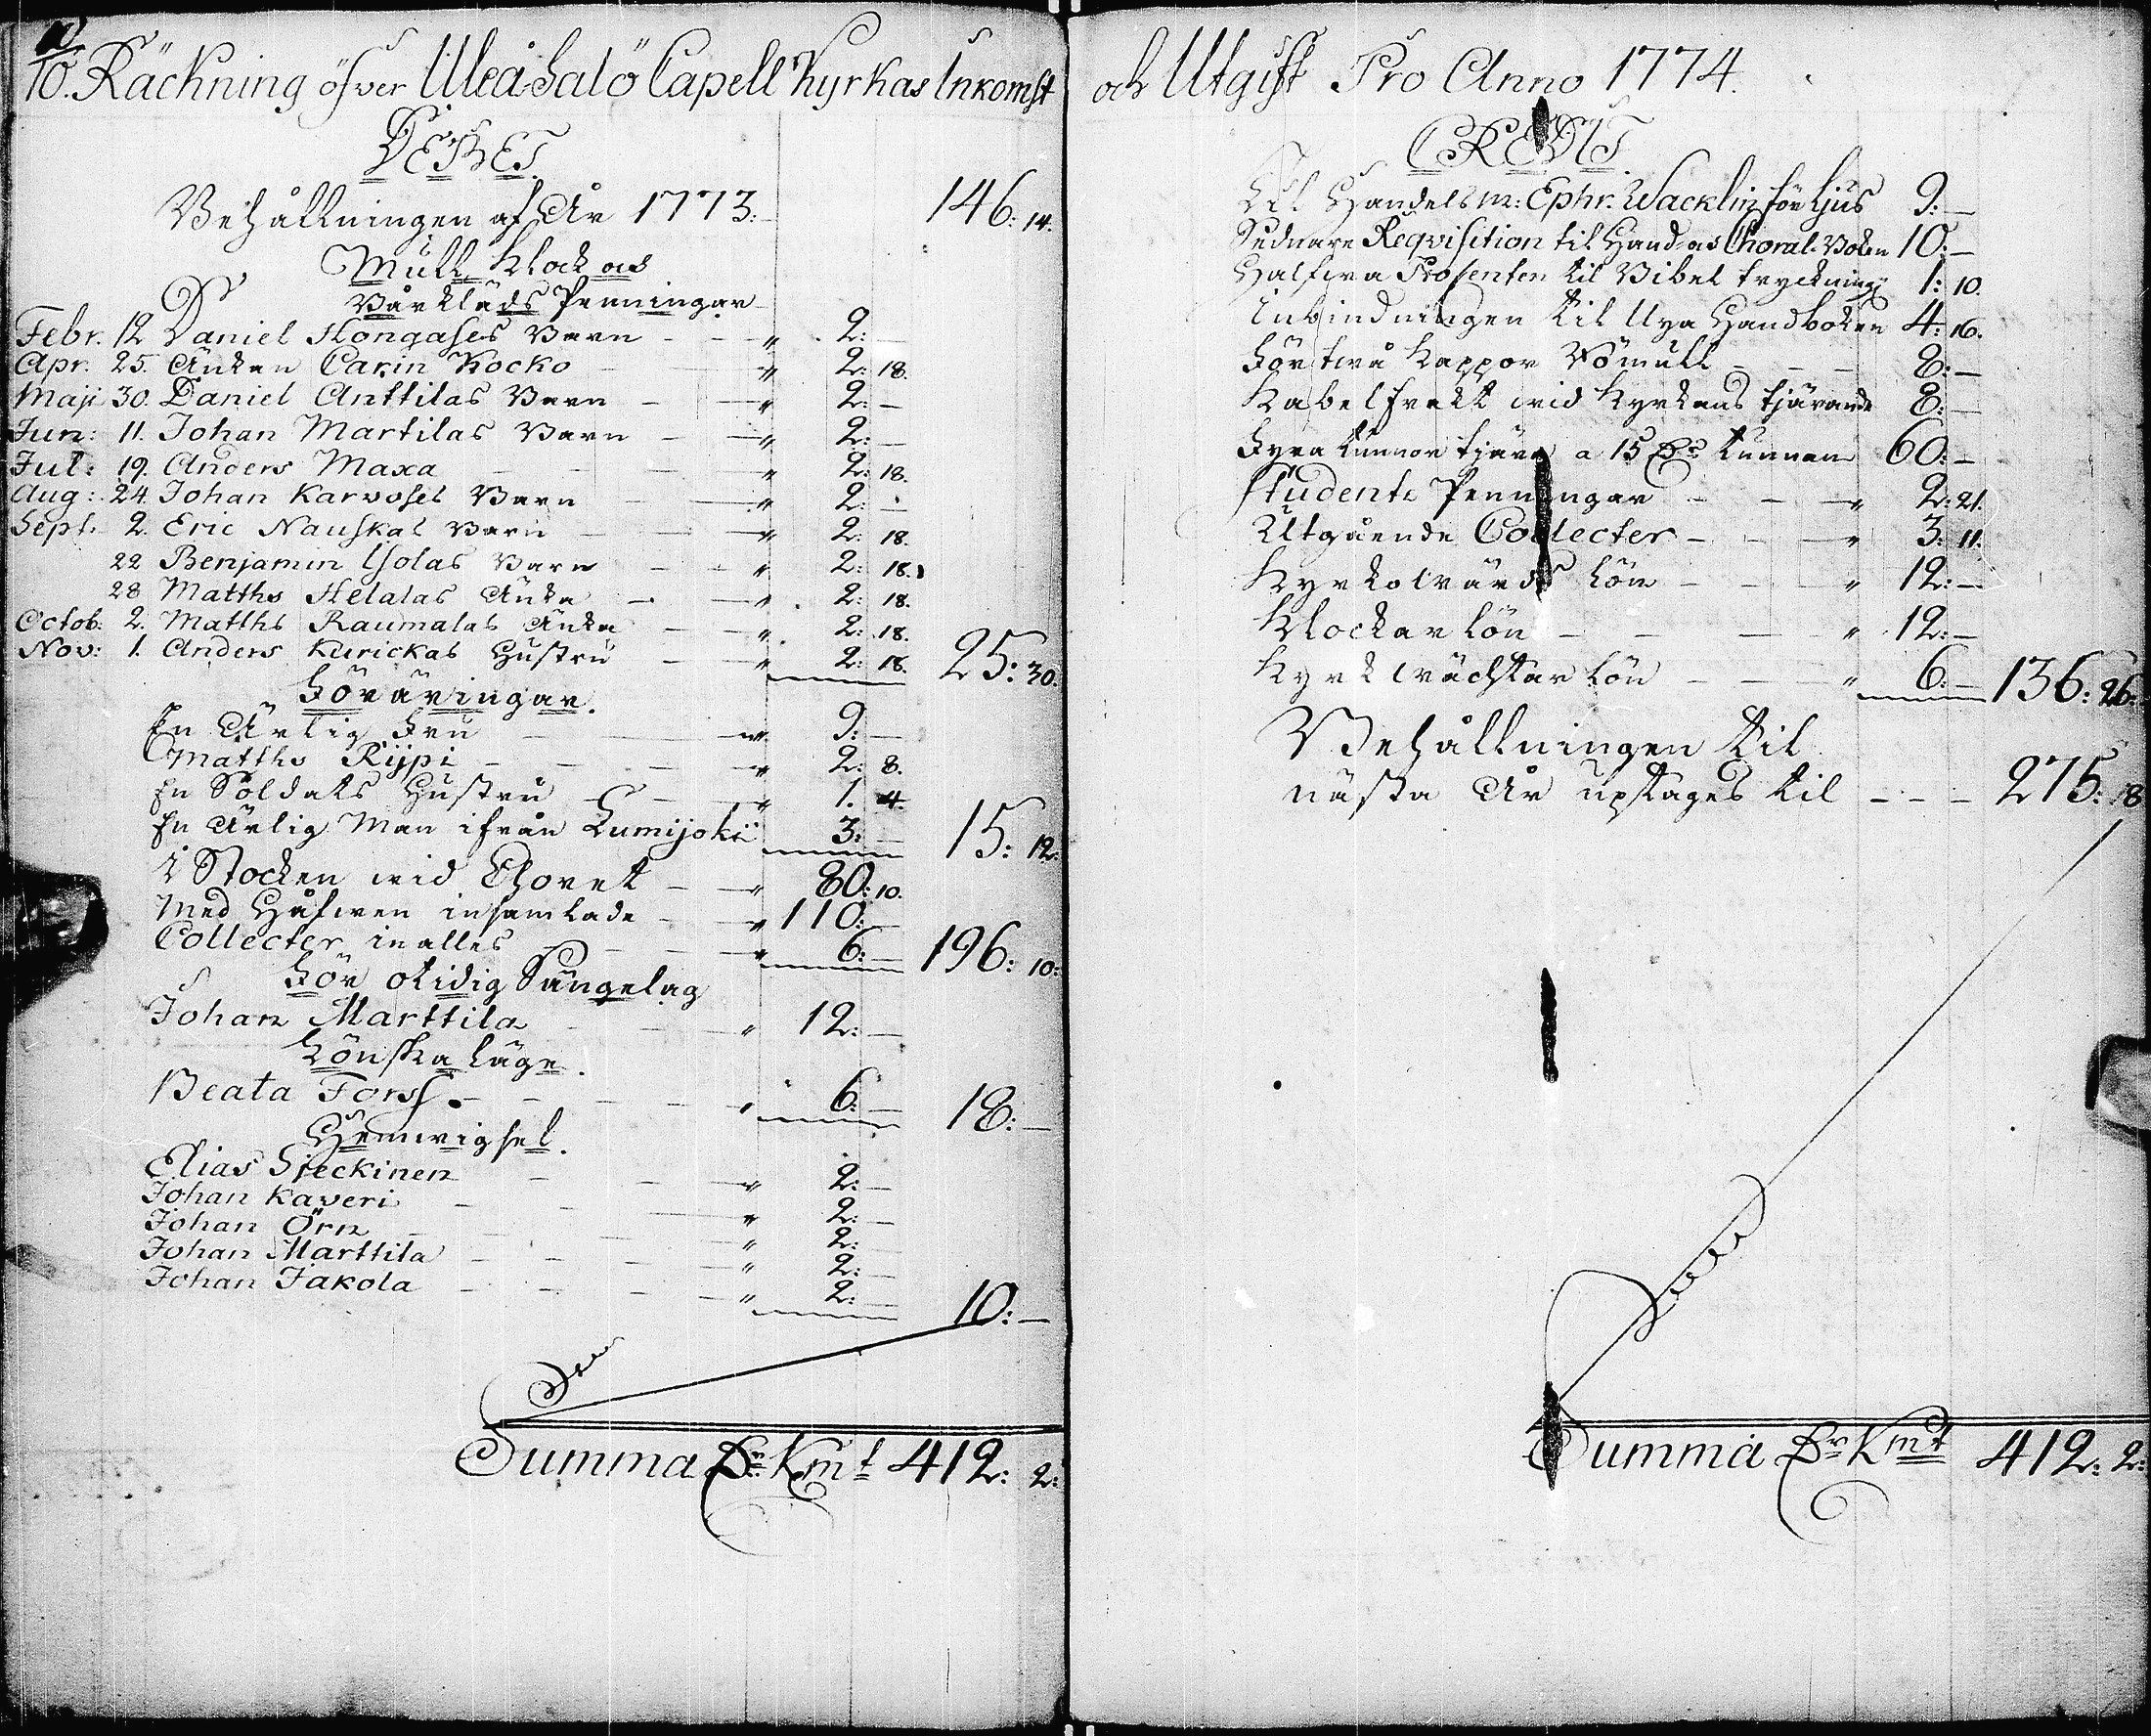 10. Räckning öfver Uleå Salo Capell Kyrkas Inkomst
DEBET.
Behållningen af År 1773: 146: 14.
Mull, Klock os
Bårkläds Penningar
Febr. 12 Daniel Hongases Barn - - " 2: —
Apr. 25. Änkan Carin Kocko - " 2: 18.
Maji 30. Daniel Anttilas Barn - " 2: —
Jun: 11. Johan Martilas Barn - " 2: —
Jul: 19. Anders Maxa - - " 2: 18.
Aug: 24. Johan Karvoses Barn - " 2: —
Sept. 2. Eric Nauskas Barn - " 2: 18.
22 Benjamin Isolas Barn - " 2: 18.
28 Matths Helalas Änka - " 2: 18.
Octob: 2. Matths Raumalas Änka - " 2: 18.
Nov: 1. Anders Kurickas Hustru - " 2: 18. 25: 30.
Föräringar.
En Ärlig Fru - " 9: —
Matths Rijpi - - " 2: 8.
En Soldats Hustru - " 1. 4.
En Ärlig Man ifrån Lumijoki 3: — 15: 12.
I Stocken wid Choret - " 80: 10.
Med Håfwen insamlade - " 110: —
Collecter in alles - " 6: — 196: 10:
För otidig Sängelag
Johan Marttila - " 12: —
Lönska läge.
Beata Forss. - - " 6: — 18: —
Hemwigsel.
Elias Sieckinen - - " 2: —
Johan Kaveri - - " 2: —
Johan Örn - - " 2: —
Johan Marttila - - " 2: —
Johan Jakola - - " 2: — 10: —
Summa Dr Kmt 412: 2:
och Utgift Pro Anno 1774.
CREDIT.
Til Handelsm: Ephr. Wacklin för ljus 9: —
Sednare Reqvisition til Hand-as Choral-Boken 10: —
Halfwa Prosenten til Bibel tryckning 1: 10.
Inbindningen til Nya Handboken 4: 16.
För twå Kappor Römull - - 8: —
Kabelfrakt wid Kyrkans tjärande 8: —
Fyra tunnor tjära a 15 Dr tunnan 60: —
Studente Penningar - - " 2: 21.
Utgående Collecter - - " 3: 11.
Kyrkowärds lön - - " 12: —
Klockar lön - - " 12: —
Kyrkwächtar lön - - " 6: — 136: 26:
Behållningen til
nästa År uptages til - - - 275: 8
Summa Dr Kmt 412: 2: